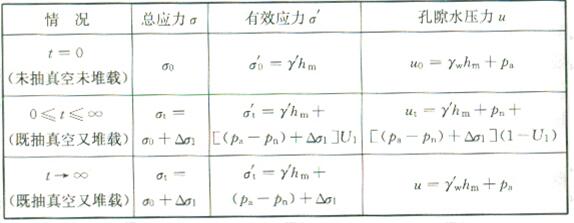 情 况 总应力 σ 有效应力 σ′ 孔隙水压力 u
t = 0
(未抽真空未堆载)
σ₀
σ′₀ = γ′hₘ
u₀ = γ_w hₘ + pₐ
0 ≤ t ≤ ∞
(既抽真空又堆载)
σₜ =
σ₀ + Δσ₁
σ′ₜ = γ′hₘ +
[(pₐ − pₙ) + Δσ₁]U₁
uₜ = γ′hₘ + pₙ +
[(pₐ − pₙ) + Δσ₁](1 − U₁)
t → ∞
(既抽真空又堆载)
σₜ =
σ₀ + Δσ₁
σ′ₜ = γ′hₘ +
(pₐ − pₙ) + Δσ₁
u = γ′_w hₘ + pₐ